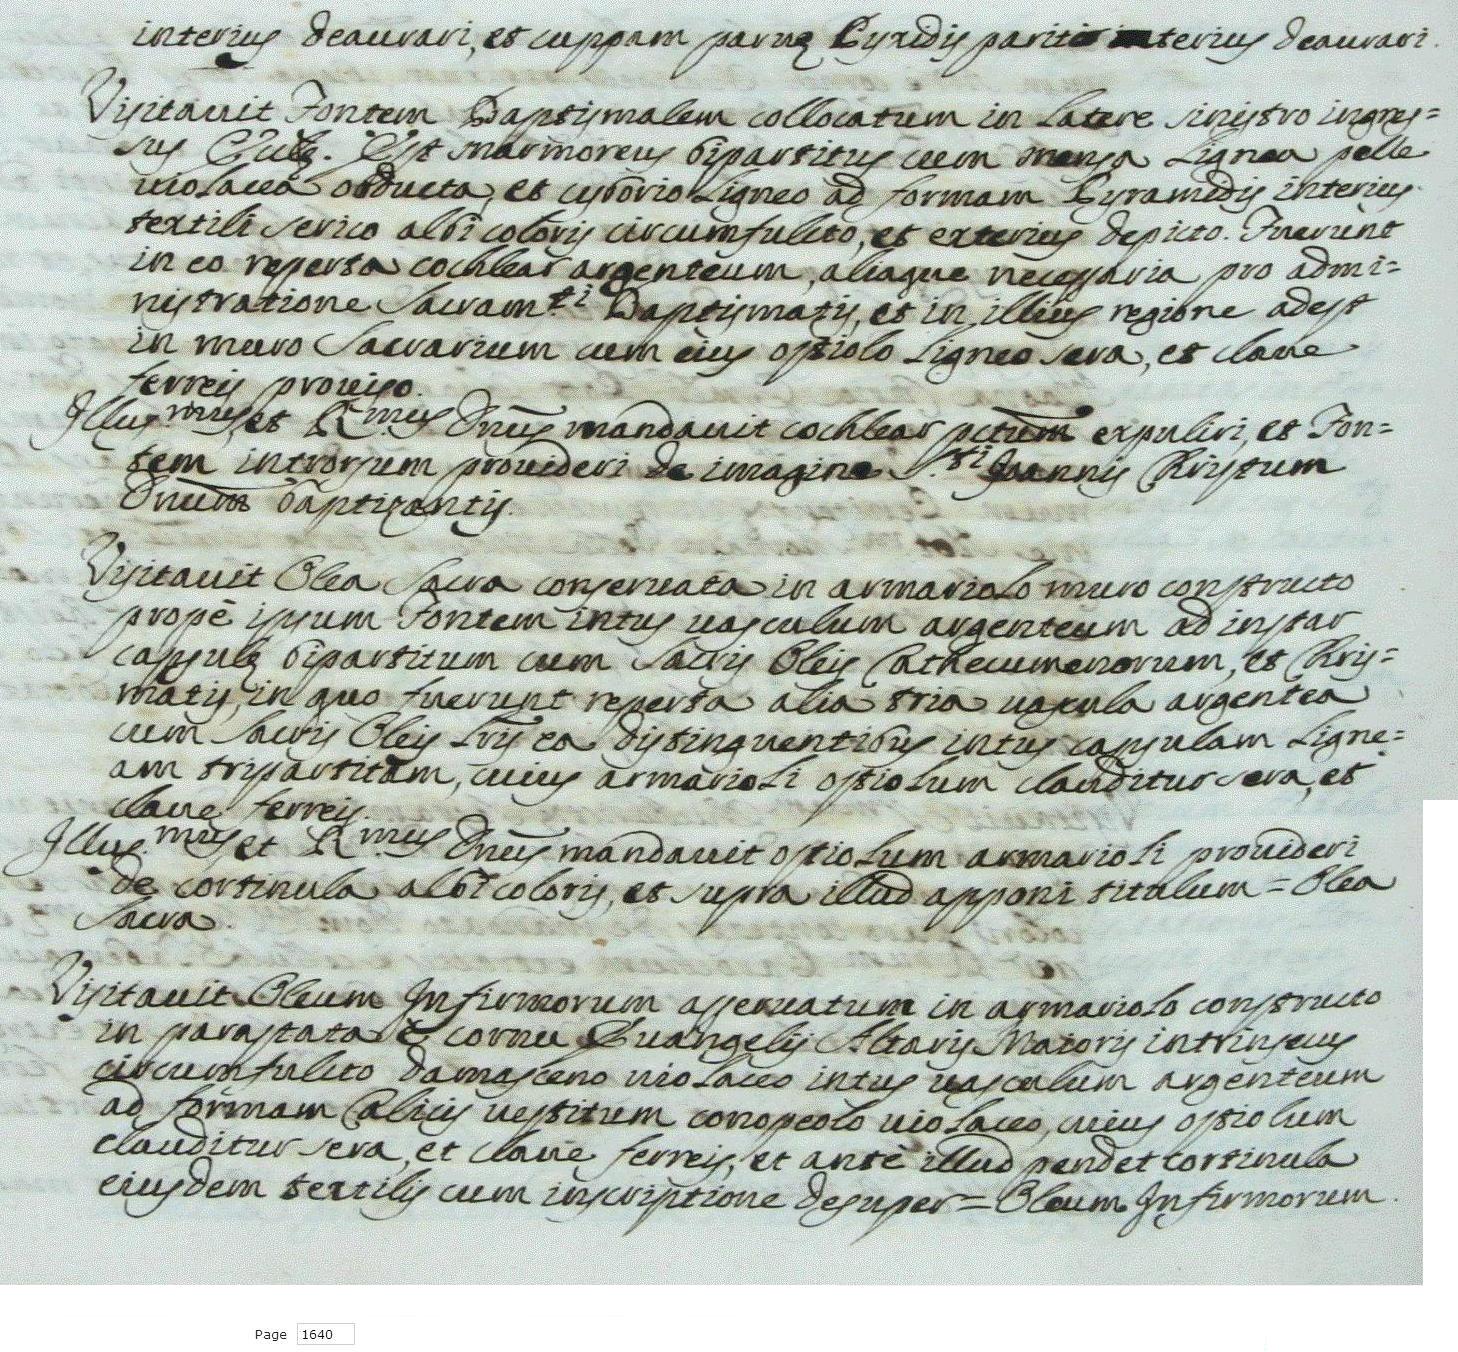 interius deaurari, et cuppam paruę Pyxidis pariter interius deaurari.
Visitauit Fontem Baptismalem collocatum in latere sinistro ingres=
sus Ecclę. Est marmoreus bipartitus cum mensa lignea pelle
uiolacea obducta, et cyborio ligneo ad formam Pyramidis interius
textili serico albi coloris circumfulcito, et exterius depicto. Fuerunt
in eo reperta cochlear argenteum, aliaque necessaria pro admi=
nistratione Sacram.ti Baptismatis, et in illius regione adest
in muro Sacrarium cum eius ostiolo ligneo sera, et claue
ferreis prouiso.
Illus.mus, et R.mus Dnus mandauit cochlear pctum expoliri, et Fon=
tem introrsum prouideri de imagine S.ti Joannis Christum
Dnum baptizantis.
Visitauit Olea Sacra conseruata in armariolo muro constructo
propè ipsum Fontem intus uasculum argenteum ad instar
capsulę bipartitum cum Sacris Oleis Cathecumenorum, et Chris=
matis, in quo fuerunt reperta alia tria uascula argentea
cum Sacris Oleis Lris ea distinguentibus intus capsulam ligne=
am tripartitam, cuius armarioli ostiolum clauditur sera, et
claue ferreis.
Illus.mus et R.mus Dnus mandauit ostiolum armarioli prouideri
de cortinula albi coloris, et supra illud apponi titulum = Olea
Sacra.
Visitauit Oleum Infirmorum asseruatum in armariolo constructo
in parastata è cornu Euangelij Altaris Maioris intrinsecus
circumfulcito damasceno uiolaceo intus uasculum argenteum
ad formam Calicis uestitum conopeolo uiolaceo, cuius ostiolum
clauditur sera, et claue ferreis, et antè illud pendet cortinula
eiusdem textilis cum inscriptione desuper = Oleum Infirmorum.
Page 1640